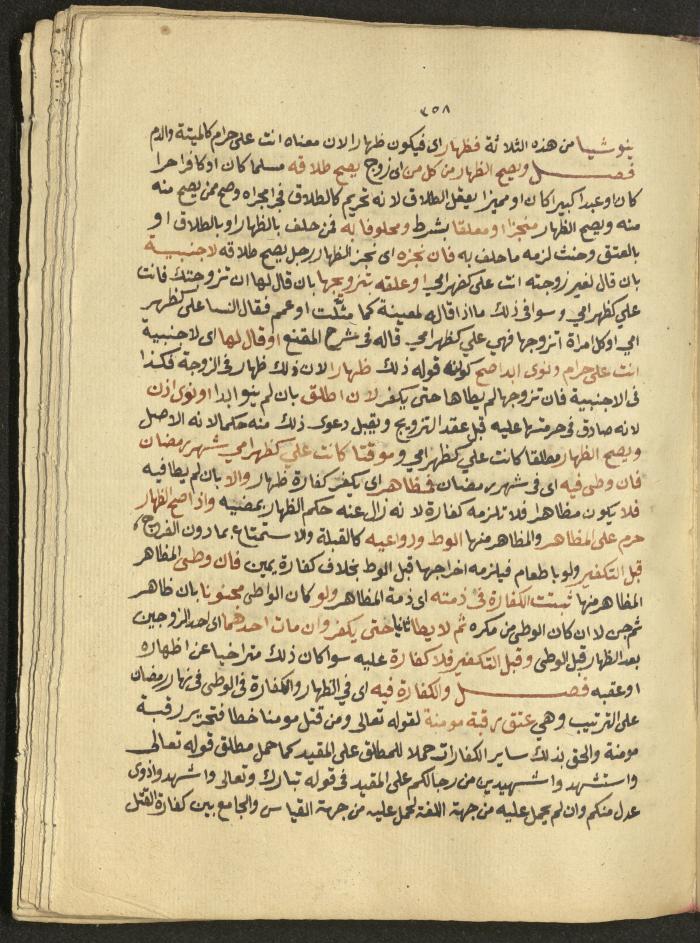 ٣٥٨
ينو شيا من هذه الثلاثة فظهار اي فيكون ظهارا لان معناه انت علي حرام كالميتة والدم
فصل ويصح الظهار من كل من اي زوج يصح طلاقه مسلما كان او كافرا حرا
كان او عبدا كبيرا كان او مميزا يعقل الطلاق لانه تحريم كالطلاق فجري مجراه وصح ممن يصح منه
منه ويصح الظهار منجزا ومعلقا بشرط ومحلوفا به فمن حلف بالظهار او بالطلاق او
بالعتق وحنث لزمه ما حلف به فان نجزه اي نجز الظهار رجل يصح طلاقه لاجنبية
بان قال لغير زوجته انت علي كظهر امي او علقه بتزويجها بان قال لها ان تزوجتك فانت
علي كظهر امي وسوا في ذلك ما اذا قاله لمعينة كما مثلت او عمم فقال النسا علي كظهر
امي او كل امراة اتزوجها فهي علي كظهر امي قاله في شرح المقنع او قال لها اي لاجنبية
انت علي حرام ونوي ابدا صح كونه قوله ذلك ظهارا لان ذلك ظهار في الزوجة فكذا
في الاجنبية فان تزوجها لم يطاها حتى يكفر لا ان اطلق بان لم ينو ابدا او نوى اذن
لانه صادق في حرمتها عليه قبل عقد التزويج ويقبل دعوى ذلك منه حكما لانه الاصل
ويصح الظهار مطلقا كانت علي كظهر امي وموقتا كانت علي كظهر امي شهر رمضان
فان وطي فيه اي في شهر رمضان فمظاهر اي يكفر كفارة ظهار والا بان لم يطا فيه
فلا يكون مظاهرا فلا تلزمه كفارة لانه زال عنه حكم الظهار بمضيه واذا صح الظهار
حرم على المظاهر والمظاهر منها الوط ودواعيه كالقبلة والاستمتاع بما دون الفرج
قبل التكفير ولو باطعام فيلزمه اخراجها قبل الوط بخلاف كفارة يمين فان وطي المظاهر
المظاهر منها ثبتت الكفارة في ذمته اي ذمة المظاهر ولو كان الواطي مجنونا بان ظاهر
ثم جن لا ان كان الوطي من مكره ثم لا يطا ثانيا حتى يكفر وان مات احدهما اي احد الزوجين
بعد الظهار قبل الوطي وقبل التكفير فلا كفارة عليه سوا كان ذلك متراخيا عن اظهاره
او عقبه فصل والكفارة فيه اي في الظهار والكفارة في الوطي في نهار رمضان
على الترتيب وهي عتق رقبة مومنة لقوله تعالى ومن قتل مومنا خطا فتحرير رقبة
مومنة والحق بذلك ساير الكفارات حملا للمطلق على المقيد كما حمل مطلق قوله تعالى
واستشهدوا شهيدين من رجالكم على المقيد في قوله تبارك وتعالى واشهدوا ذوى
عدل منكم وان لم يحمل عليه من جهة اللغة لحمل عليه من جهة القياس والجامع بين كفارة القتل